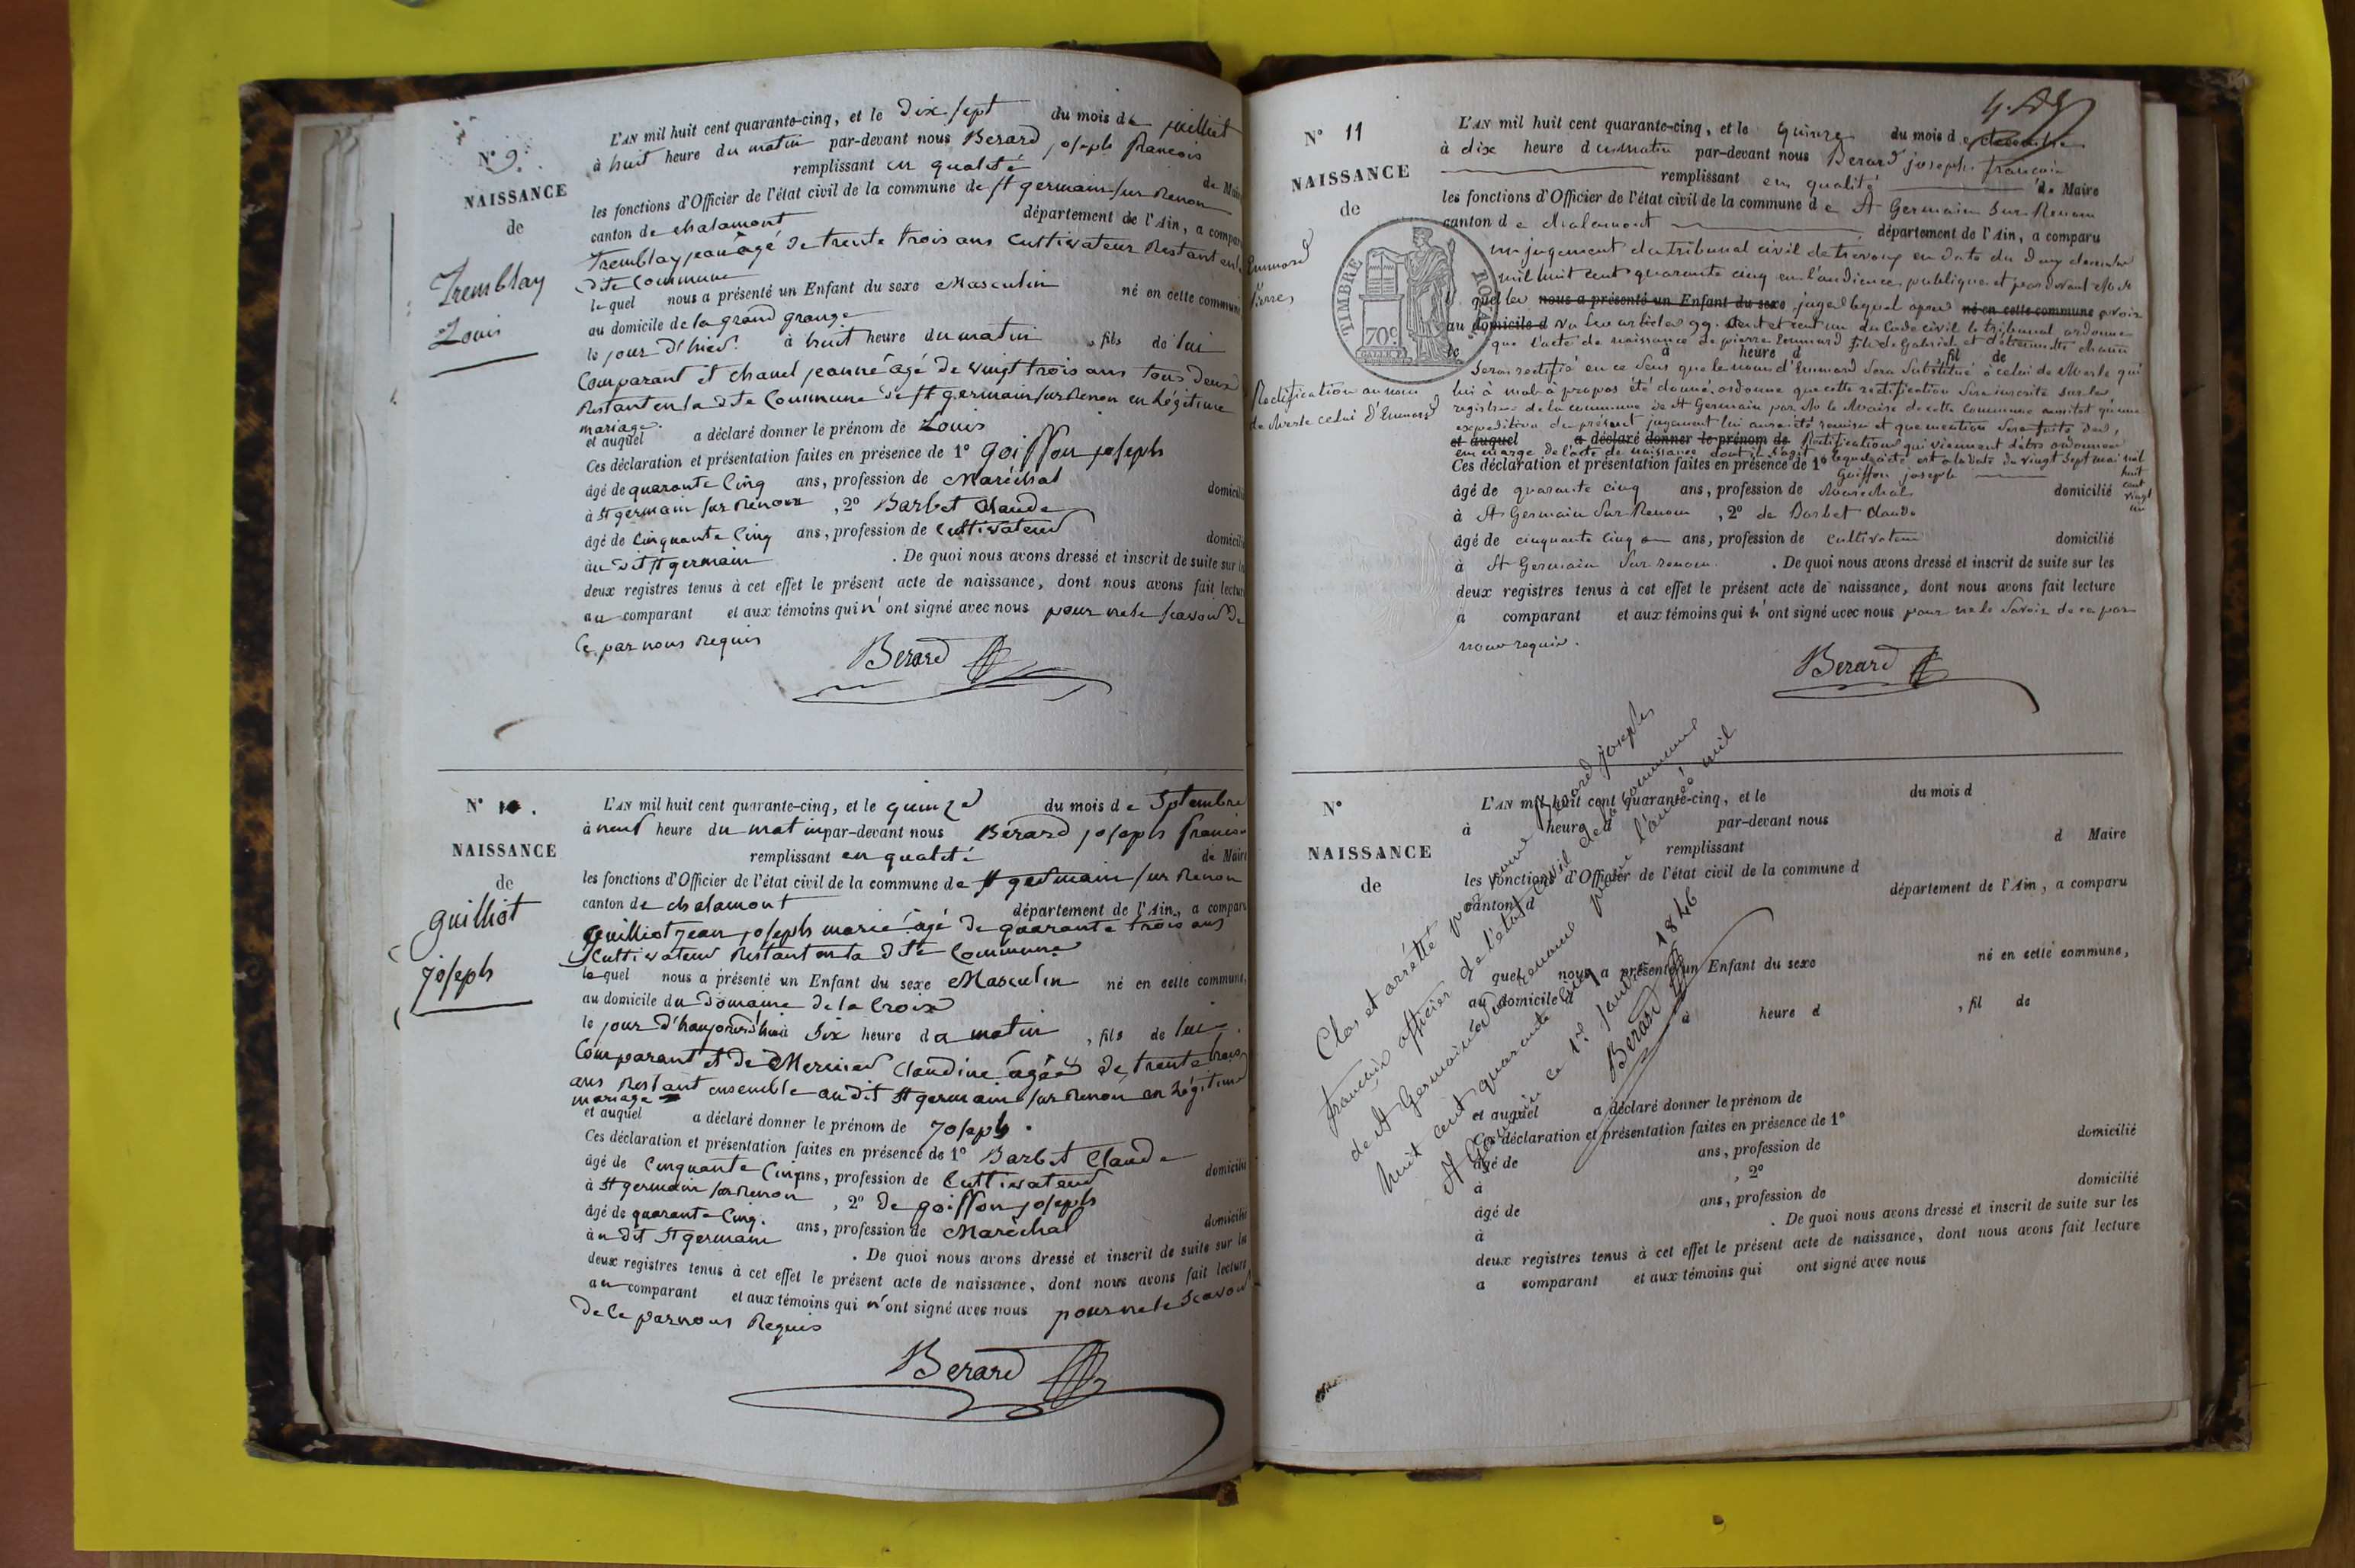 N° 9.
NAISSANCE
de
Tremblay
Louis
L'AN mil huit cent quarante-cinq, et le dix sept du mois de juilliet
à huit heure du matin par-devant nous Berard joseph francois
remplissant en qualité de Maire
les fonctions d'Officier de l'état civil de la commune de st germain sur Renon
canton de chalamont département de l'Ain, a comparu
Tremblay jean âgé de trente trois ans Cultivateur Restant en la
dite Commune
le quel nous a présenté un Enfant du sexe Masculin né en cette commune
au domicile de la grand grange
le jour d'hier à huit heure du matin , fils de lui
Comparant et chanel jeanne âgé de vingt trois ans tous deux
Restant en la dite Commune de st germain sur Renon en Légitime
mariage.
et auquel a déclaré donner le prénom de Louis
Ces déclaration et présentation faites en présence de 1° goiffon joseph
âgé de quarante Cinq ans, profession de Maréchal domicilié
à st germain sur Renon , 2° Barbet Claude
âgé de Cinquante Cinq ans, profession de Cultivateur domicilié
àu dit st germain . De quoi nous avons dressé et inscrit de suite sur les
deux registres tenus à cet effet le présent acte de naissance, dont nous avons fait lecture
au comparant et aux témoins qui n'ont signé avec nous pour ne le scavoir de
Ce par nous Requis
Berard
N° 10.
NAISSANCE
de
guilliot
joseph
L'AN mil huit cent quarante-cinq, et le quinze du mois de Septembre
à neuf heure du matin par-devant nous Bérard joseph francois
remplissant en qualité de Maire
les fonctions d'Officier de l'état civil de la commune de st germain sur Renon
canton de chalamont département de l'Ain, a comparu
guilliot jean joseph marie âgé de quarante trois ans
Cultivateur Restant en la dite Commune
le quel nous a présenté un Enfant du sexe Masculin né en cette commune,
au domicile du Domaine de la Croix
le jour d'haujourd'hui à Six heure du matin , fils de lui
Comparant et de Mernier Claudine âgée de trente trois
ans Restant ensemble au dit st germain sur Renon en Légitime
mariage
et auquel a déclaré donner le prénom de joseph.
Ces déclaration et présentation faites en présence de 1° Barbet Claude
âgé de Cinquante Cinq ans, profession de Cultivateur domicilié
à st germain sur Renon , 2° de goiffon joseph
âgé de quarante Cinq. ans, profession de Maréchal domicilié
àu dit st germain . De quoi nous avons dressé et inscrit de suite sur les
deux registres tenus à cet effet le présent acte de naissance, dont nous avons fait lecture
au comparant et aux témoins qui n'ont signé avec nous pour ne le Scavoir
de Ce par nous Requis
Berard
N° 11
NAISSANCE
de
Emmard
Pierre
Rectification au nom
de Merle celui d'Emmard
TIMBRE ROYAL
70c
L'AN mil huit cent quarante-cinq, et le quinze du mois de decembre
à dix heure du matin par-devant nous Berard joseph francois
remplissant en qualité de Maire
les fonctions d'Officier de l'état civil de la commune de St Germain Sur Renom
canton de chalamont département de l'Ain, a comparu
un jugement du tribunal civil de trevoux en date du deux decembre
mil huit cent quarante cinq en l'audience publique et par devant
quel les nous a présenté un Enfant du sexe juges lequel après né en cette commune avoir
au domicile d vu les articles 99. Cent et cent un du Code civil le tribunal ordonne
que l'acte de naissance de pierre Emmard fils de Gabriel et
le à heure d , fil de
Sera rectifié en ce Sens que le nom d'Emmard Sera Substitué à celui de Merle qui
lui à mal à propos été donné, ordonne que cette rectification Sera inscrite sur les
registres de la commune de St Germain par Mr le Maire de cette Commune aussitot qu'une
expedition du présent jugement lui aura été remise et que mention Sera faite des
et auquel a déclaré donner le prénom de Rectifications qui viennent d'être ordonnées
en marge de l'acte de naissance dont il s'agit lequel acte est à la date du vingt Sept mai mil
huit
cent
vingt
un
Ces déclaration et présentation faites en présence de 1° Goiffon joseph
âgé de quarante cinq ans, profession de Marechal domicilié
à St Germain Sur Renom , 2° de Barbet Claude
âgé de cinquante Cinq ans, profession de Cultivateur domicilié
à St Germain Sur renom . De quoi nous avons dressé et inscrit de suite sur les
deux registres tenus à cet effet le présent acte de naissance, dont nous avons fait lecture
a comparant et aux témoins qui n'ont signé avec nous pour ne le Savoir de ce par
nous requis.
Berard
N°
NAISSANCE
de
L'AN mil huit cent quarante-cinq, et le du mois d
à heure d par-devant nous
remplissant d Maire
les fonctions d'Officier de l'état civil de la commune d
canton d département de l'Ain, a comparu
quel nous a présenté un Enfant du sexe né en cette commune,
au domicile d
le à heure d , fil de
et auquel a déclaré donner le prénom de
Ces déclaration et présentation faites en présence de 1°
âgé de ans, profession de domicilié
à , 2°
âgé de ans, profession de domicilié
à . De quoi nous avons dressé et inscrit de suite sur les
deux registres tenus à cet effet le présent acte de naissance, dont nous avons fait lecture
a comparant et aux témoins qui ont signé avec nous
Clos et arretté par nous Berard joseph
francois officier de l'état civil de la commune
de St Germain Sur renom pour l'année mil
huit cent quarante cinq
St Germain ce 1er janvier 1846
Berard